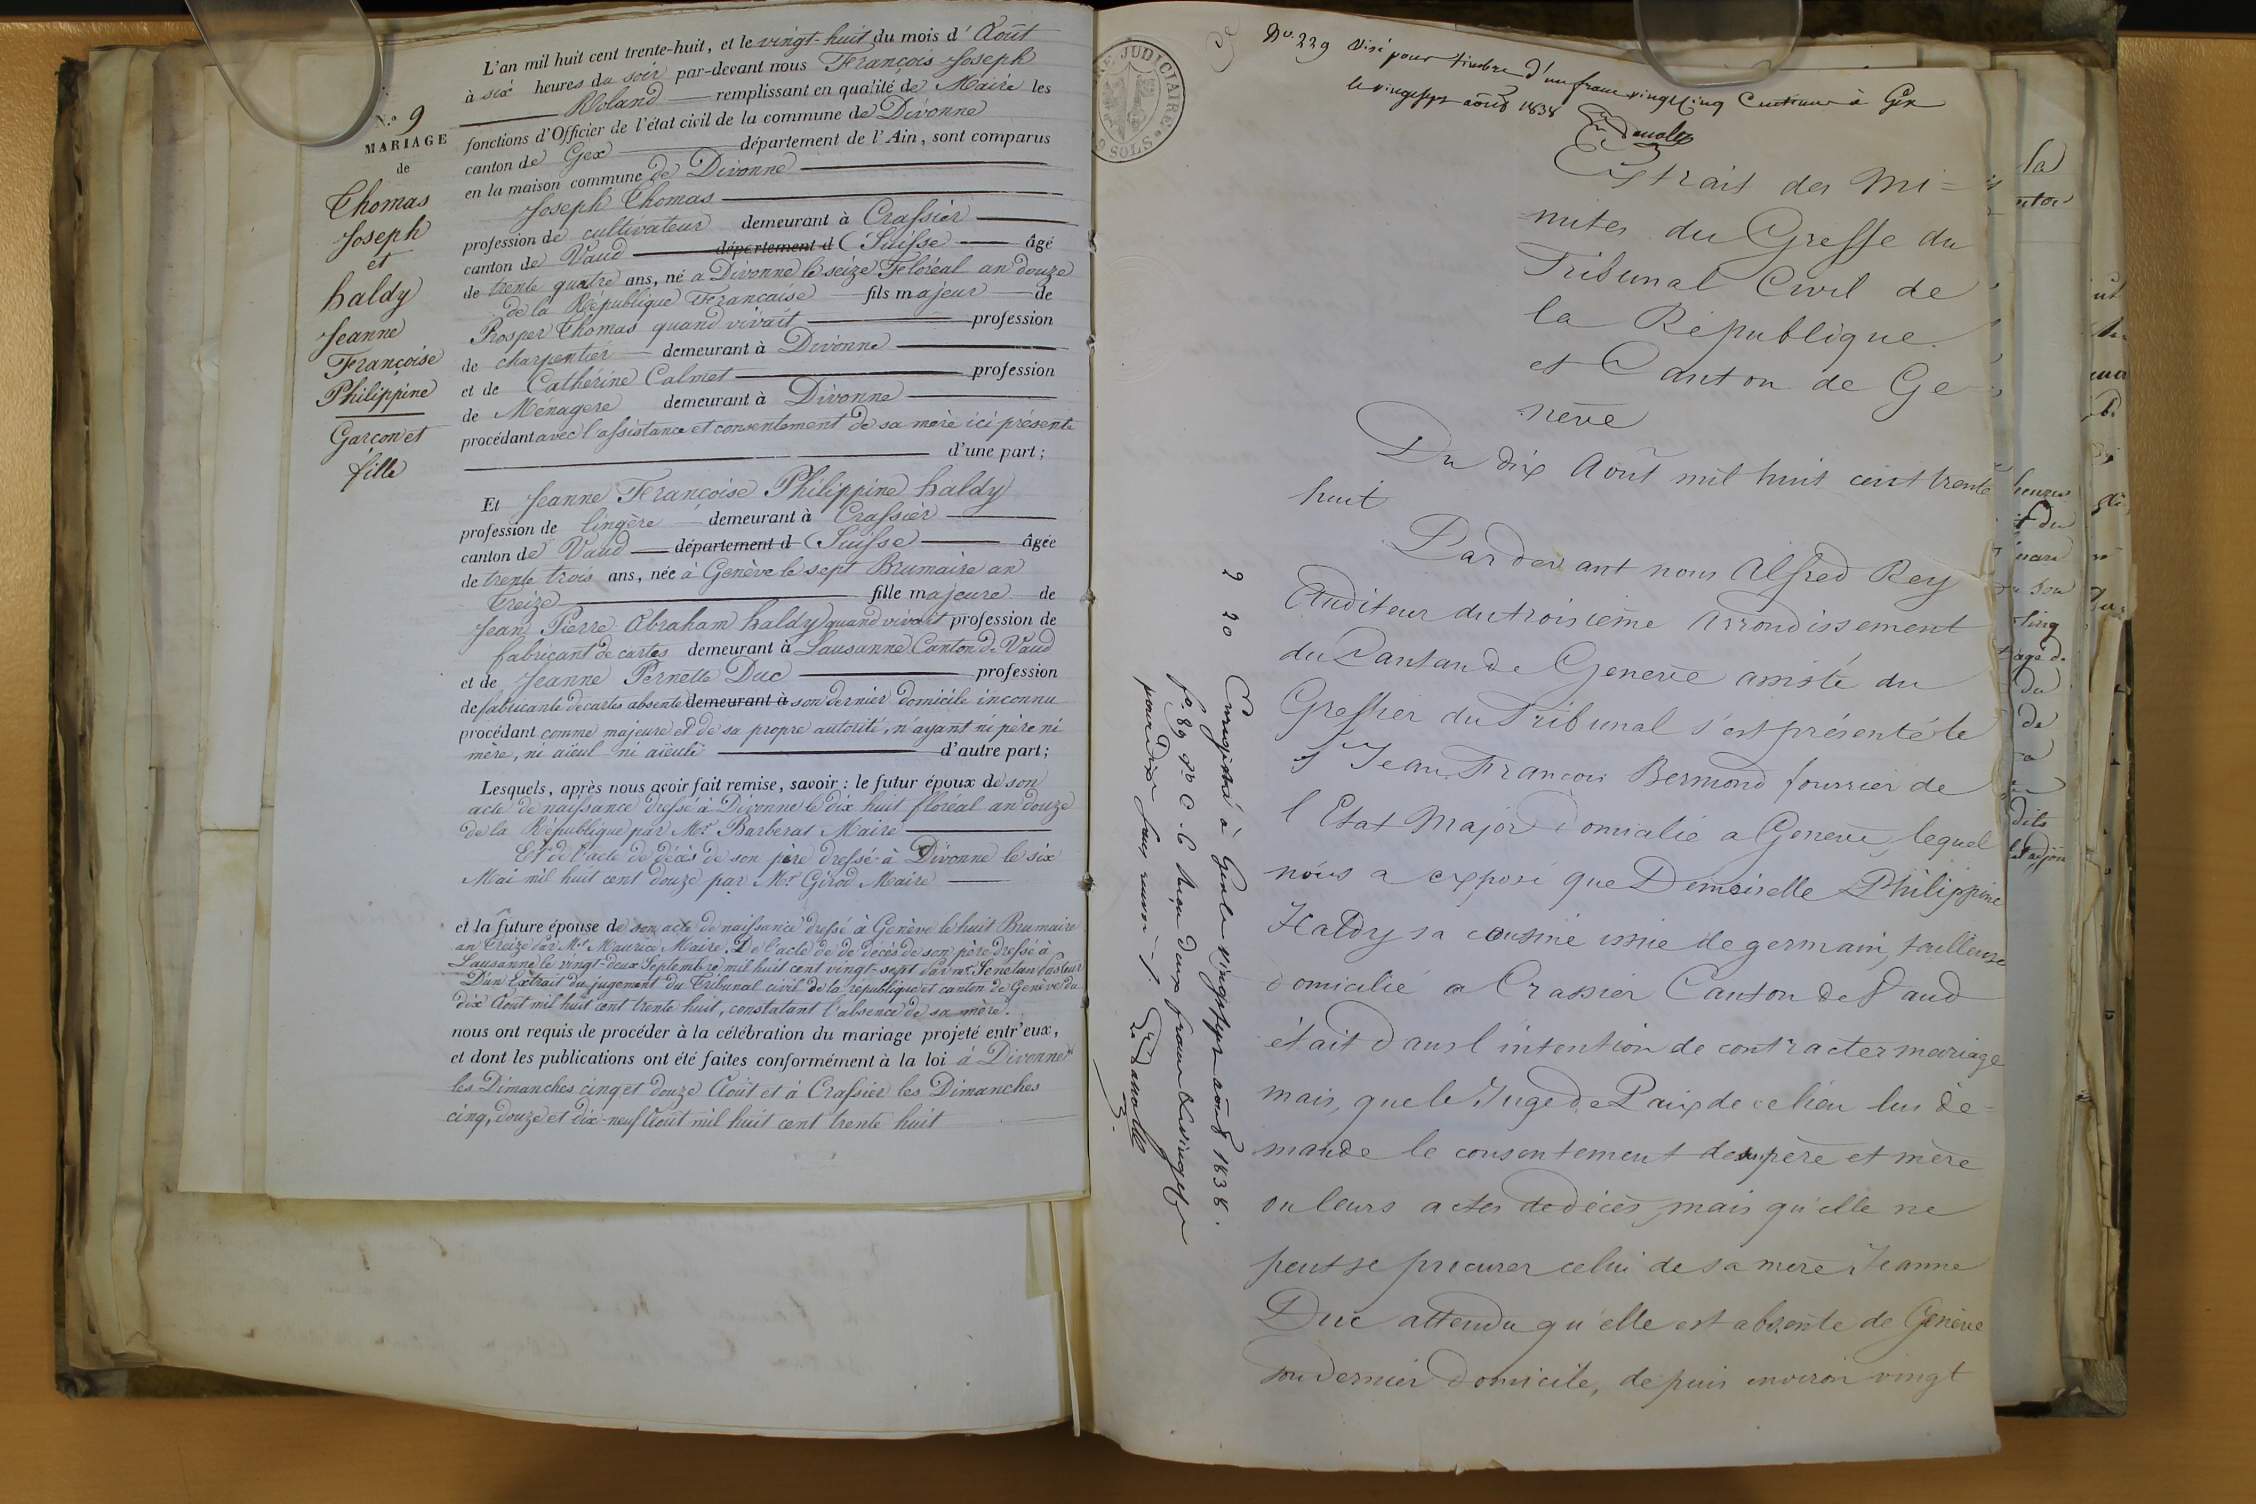 N.o 9
MARIAGE
de
Thomas
Joseph
et
haldy
Jeanne
Françoise
Philippine
Garçon et
fille
L'an mil huit cent trente-huit, et le vingt-huit du mois d'Août
à six heures du soir par-devant nous François Joseph
Roland remplissant en qualité de Maire les
fonctions d'Officier de l'état civil de la commune de Divonne
canton de Gex département de l'Ain, sont comparus
en la maison commune de Divonne
Joseph Thomas
profession de cultivateur demeurant à Crassier
canton de Vaud département d Suisse âgé
de trente quatre ans, né a Divonne le seize Floréal an douze
de la République Française fils majeur de
Prosper Thomas quand vivait profession
de charpentier demeurant à Divonne
et de Cathérine Calmet profession
de Ménagere demeurant à Divonne
procédant avec l'assistance et consentement de sa mère ici présente
d'une part;
Et Jeanne Françoise Philippine haldy
profession de lingère demeurant à Crassier
canton de Vaud département d Suisse âgée
de trente trois ans, née à Genève le sept Brumaire an
Treize fille majeure de
Jean Pierre Abraham haldy quand vivait profession de
fabricant de cartes demeurant à Lausanne Canton de Vaud
et de Jeanne Pernette Duc profession
de fabricante de cartes absente demeurant à son dernier domicile inconnu
procédant comme majeure et de sa propre autorité, n'ayant ni père ni
mère, ni aïeul ni aïeule d'autre part;
Lesquels, après nous avoir fait remise, savoir : le futur époux de son
acte de naissance dressé à Divonne le dix huit floréal an douze
de la République par Mr Barberat Maire
Et de l'acte de décès de son père dressé à Divonne le six
Mai mil huit cent douze par Mr Girod Maire
et la future épouse de son acte de naissance dressé à Genève le huit Brumaire
an treize par Mr Maurice Maire. De l'acte de de décès de son père dressé à
Lausanne le vingt-deux Septembre mil huit cent vingt-sept par Mr Pasteur
D'un Extrait du jugement du Tribunal civil de la république et canton de Genève du
dix Août mil huit cent trente huit, constatant l'absence de sa mère.
nous ont requis de procéder à la célébration du mariage projeté entr'eux,
et dont les publications ont été faites conformément à la loi à Divonne
les Dimanches cinq et douze Août et à Crassier les Dimanches
cinq, douze et dix-neuf Août mil huit cent trente huit
JUDICIAIRE
SOLS
No. 229 Visé pour timbre d'un franc vingt cinq Centimes à Gex
le vingt sept août 1838
Extrait des Mi=
nutes du Greffe du
Tribunal Civil de
la République
et Canton de Ge
nève
Du dix Août mil huit cent trente
huit
Pardevant nous Alfred Rey
Auditeur du troisième Arrondissement
du Canton de Genève assisté du
Greffier du Tribunal s'est présenté le
Sr Jean François Bermond fourrier de
l'Etat Major domicilié a Genève, lequel
nous a exposé que Demoiselle Philippine
Haldy sa cousine issue de germain, tailleuse
domicilié a Crassier Canton de Vaud
était dans l'intention de contracter mariage
mais, que le Juge de Paix de ce lieu lui de=
mande le consentement de ses père et mère
ou leurs actes de décès, mais qu'elle ne
peut se procurer celui de sa mère Jeanne
Duc attendu qu'elle est absente de Genève
son dernier domicile, depuis environ vingt
Enregistré à Gex le vingt sept août 1838.
fo. 89 Vo C. 6 Reçu deux francs &
pour dixième
la